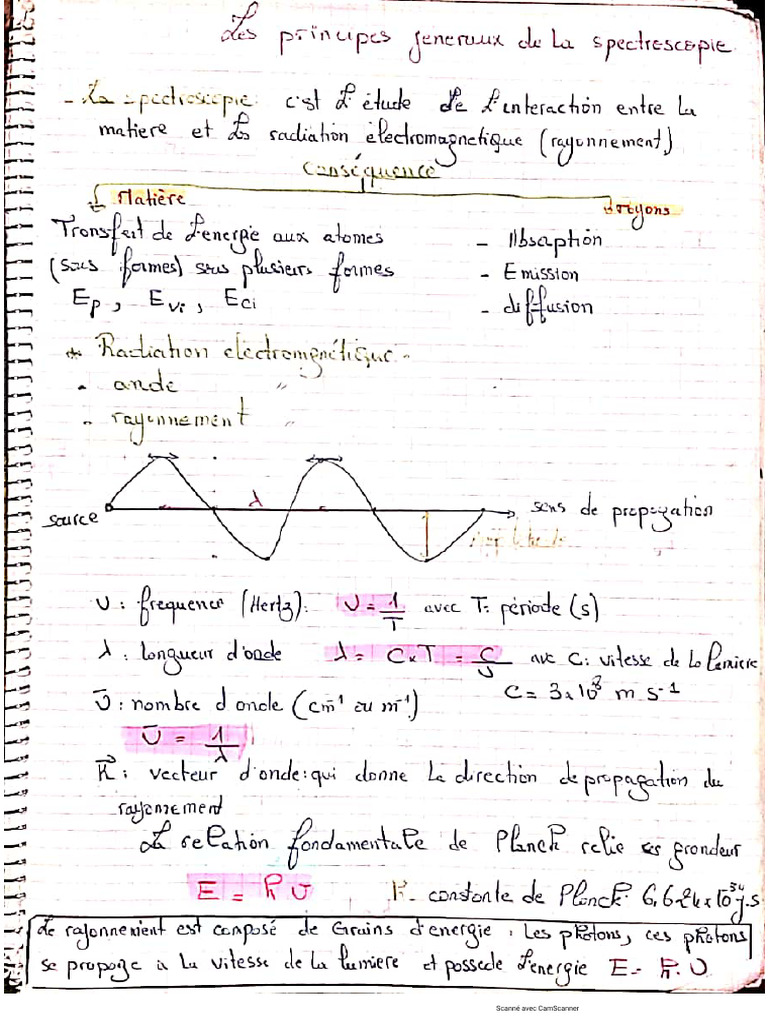 Les principes generaux de la spectroscopie
- La spectroscopie: c'est l'étude de l'interaction entre la
matiere et la radiation électromagnetique (rayonnement)
Conséquence
Matière
Transfert de l'energie aux atomes
(sous formes) sous plusieurs formes
Ep, Evi, Eci
Rayons
- Absorption
- Emission
- diffusion
* Radiation electromgnétique -
- onde "
- rayonnement "
λ
source
sens de propagation
ν : frequence (Hertz): ν = 1/T avec T: période (s)
λ : longueur d'onde λ = C x T = C/ν avec C: vitesse de la lumiere
C = 3 x 10⁸ m s⁻¹
ν̄ : nombre d'onde (cm⁻¹ ou m⁻¹)
ν̄ = 1/λ
K⃗ : vecteur d'onde: qui donne la direction de propagation du
rayonnement
La relation fondamentale de Planck relie ces grandeur
E = h ν h - constante de Planck: 6,624 x 10³⁴ j.s
Le rayonnement est composé de Grains d'energie : Les photons, ces photons
se propage à la vitesse de la lumiere et possede l'energie E = h.ν
Scanné avec CamScanner